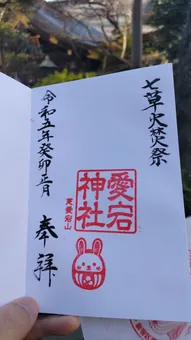 七草火焚祭
愛宕
神社
愛宕山
奉拝
令和五年癸卯正月